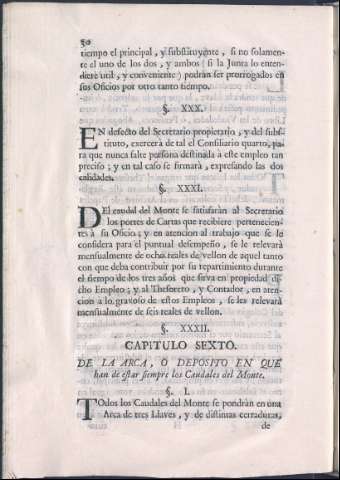 30
tiempo el principal, y substituyente, si no solamen-
te el uno de los dos, y ambos (si la Junta lo enten-
diere util, y conveniente) podrán ser prorrogados en
sus Oficios por otro tanto tiempo.
§. XXX.
EN defecto del Secretario propietario, y del subs-
tituto, exercerà de tal el Consiliario quarto, pa-
ra que nunca falte persona destinada à este empleo tan
preciso; y en tal caso se firmarà, expresando las dos
calidades.
§. XXXI.
DEl caudal del Monte se satisfarán al Secretario
los portes de Cartas que recibiere pertenecien-
tes à su Oficio; y en atencion al trabajo que se le
considera para el puntual desempeño, se le relevarà
mensualmente de ocho reales de vellon de aquel tanto
con que deba contribuir por su repartimiento durante
el tiempo de los tres años que sirva en propiedad di-
cho Empleo; y al Thesorero, y Contador, en aten-
cion à lo gratoso de estos Empleos, se les relevarà
mensualmente de seis reales de vellon.
§. XXXII.
CAPITULO SEXTO.
DE LA ARCA, O DEPOSITO EN QUE
han de estar siempre los Caudales del Monte.
§. I.
TOdos los Caudales del Monte se pondrán en una
Arca de tres Llaves, y de distintas cerraduras,
de